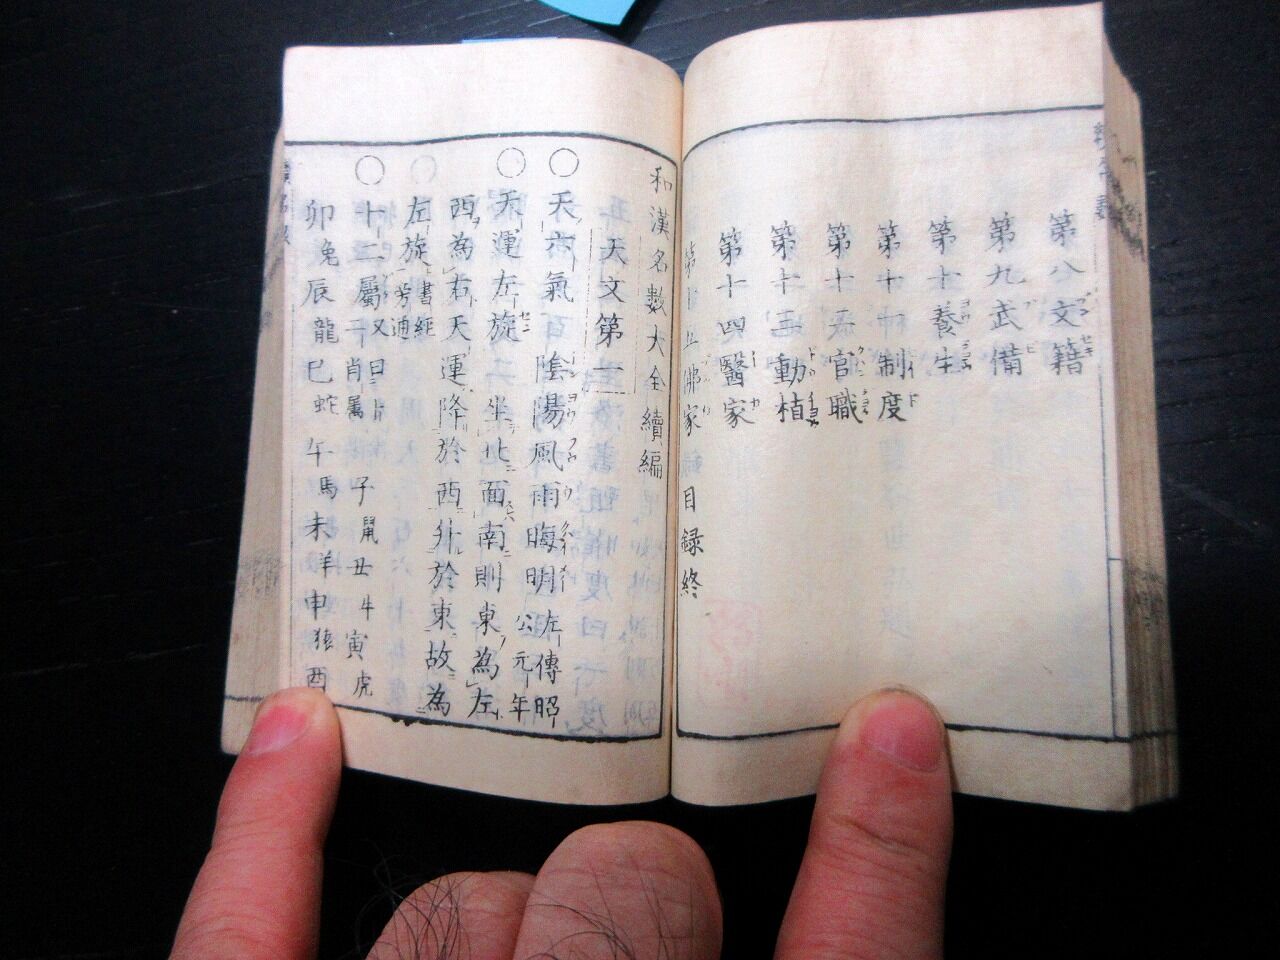 第八文籍
第九武備
第十養生
第十一制度
第十二官職
第十三動植
第十四醫家
第十五佛家
目録終
和漢名數大全續編
天文第一
○天六氣 陰陽風雨晦明 左傳昭公元年
○天運左旋 坐北面南則東為左
西為右天運降於西升於東故為
左旋 書經旁通
○十二屬 又曰十二肖属 子鼠丑牛寅虎
卯兔辰龍巳蛇午馬未羊申猿酉